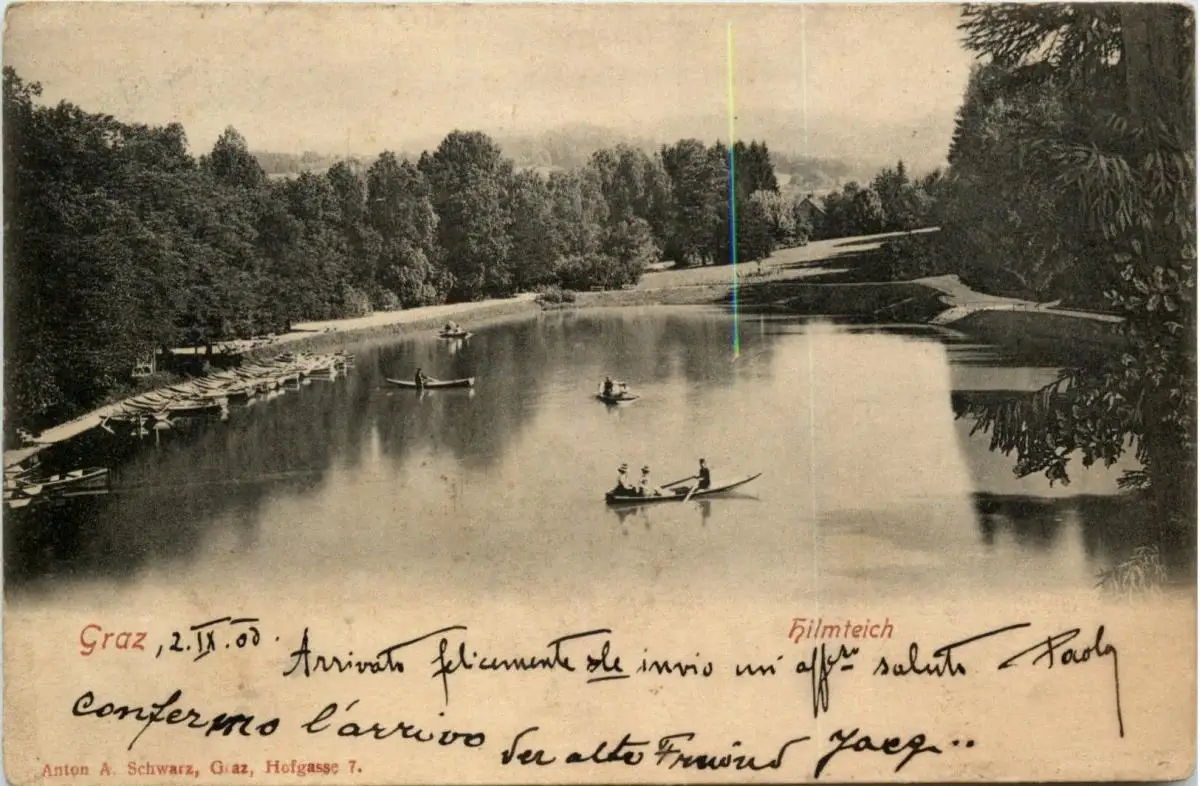 Graz, 2.IX.00. Arrivato felicemente invio un aff.mo saluto Paolo
Hilmteich
Confermo l'arrivo Der alte Freund
Anton A. Schwarz, Graz, Hofgasse 7.